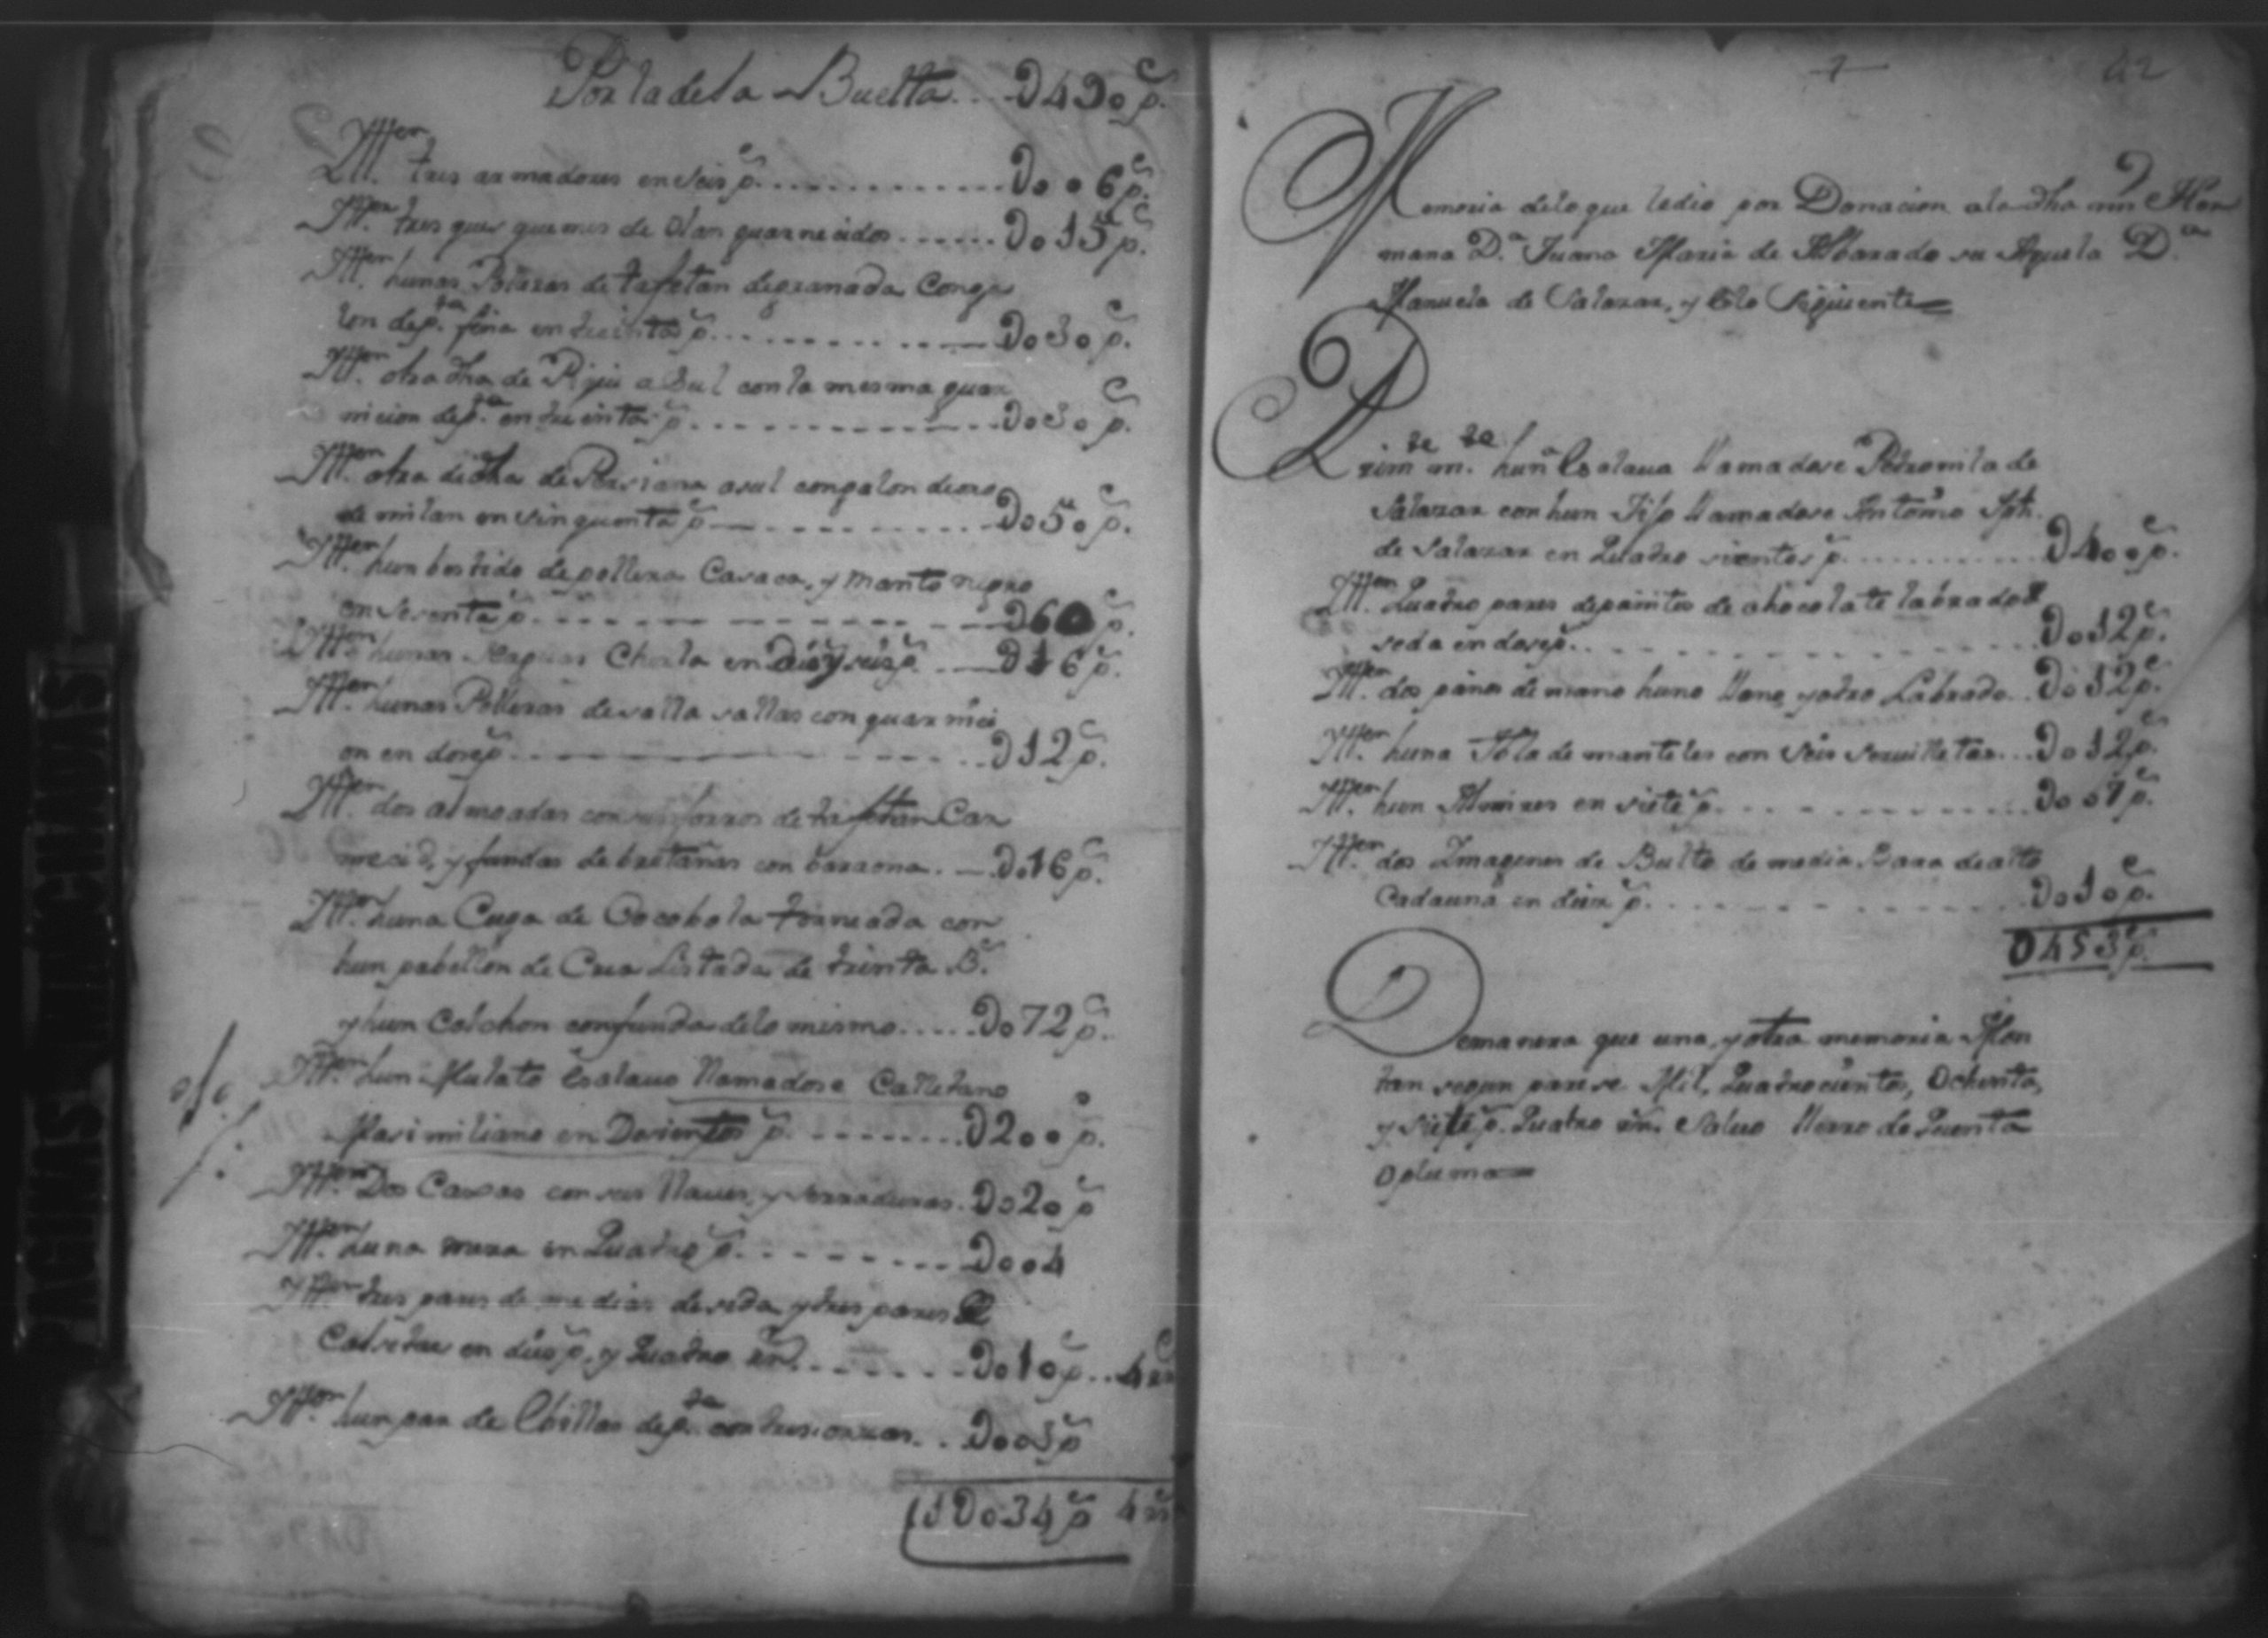 Por la de la Buelta.... D490 ps.
Ytten. tres armadores en seis ps. ............ Doo6 ps.
Ytten. tres ques quemes de olan guarnecidos ...... Do15 ps.
Ytten. hunas Polleras de tafetan de granada Con ga
lon de pta. fina en treinta ps. ............ Do30 ps.
Ytten. otra dha de asul con la mesma guar
nicion de pta. en treinta ps. ............ Do30 ps.
Ytten. otra dicha de Persiana asul con galon de oro
de milan en sinquenta ps ............ Do50 ps.
Ytten. hun bestido de pollera Casaca, y manto negro
en sesenta ps. ............ D60 ps.
Ytten. hunas Naguas en Dies y seis ps. ... D16 ps.
Ytten. hunas Polleras de salla sallas con guarnici
on en dose ps ............ D12 ps.
Ytten. dos almoadas con sus forros de tafetan Car
mecid, y fundas de bretañas con .... Do16 ps.
Ytten. huna Cuja de Cocobola torneada con
hun pabellon de Crea Listada de treinta Bs.
y hun Colchon con funda de lo mismo ..... Do72 ps.
Ytten. hun Mulato Esclauo llamadose Calletano
Masimiliano en Dosientos ps. ........ D200 ps.
Ytten. Dos Caxas con sus llaues, y serraduras. Do20 ps
Ytten. huna mesa en Quatro ps. ........ Doo4
Ytten. tres pares de medias de seda, y tres pares de
Calsetas en dies ps. y Quatro rrs. ...... Do10 ps.. 4 rrs
Ytten. hun par de Ebillas de pta. con tres onzas. . Doo3 ps
1Do34 ps 4 rrs
7 42
Memoria de lo que le dio por Donacion a la dha mi Her
mana Da. Juana Maria de Albarado su Aguela Da.
Manuela de Salazar, y Es lo Siguiente
Primte. hun Esclaua llamadose Petronila de
Salazar con hun Jijo llamadose Antonio Jph.
de Salazar en Quatro sientos ps. .......... D400 ps.
Ytten. Quatro pares de pañitos de chocolate labrados de
seda en dose ps. ............ Do12 ps.
Ytten. dos paños de mano huno llano, y otro Labrado .. Do12 ps.
Ytten. huna Tola de manteles con seis seruilletas... Do12 ps.
Ytten. hun Almires en siete ps. ............ Doo7 ps.
Ytten. dos Imagenes de Bulto de media Bara de alto
Cada una en dies ps. ............ Do10 ps.
D453 ps.
De manera que una, y otra memoria Mon
tan segun parese Mil, Quatrocientos, Ochenta,
y siete ps. Quatro rrs. Saluo llerro de Quenta
o pluma
PAGINAS MANCHADAS